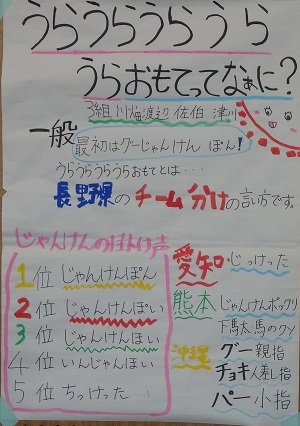 うらうらうらうら
うらおもてってなぁに?
3組 川畑 渡辺 佐伯 津川
一般
最初はグーじゃんけん ぽん!
うらうらうらうらおもてとは…
長野県のチーム分けの言い方です。
じゃんけんのほんけ声
1位 じゃんけんぽん
2位 じゃんけんぽい
3位 じゃんけんほい
4位 いんじゃんほい
5位 ちっけった
愛知 じっけった
熊本 じゃんけんポックリ
下駄太馬のクソ
沖縄 グー 親指
チョキ 人差し指
パー 小指